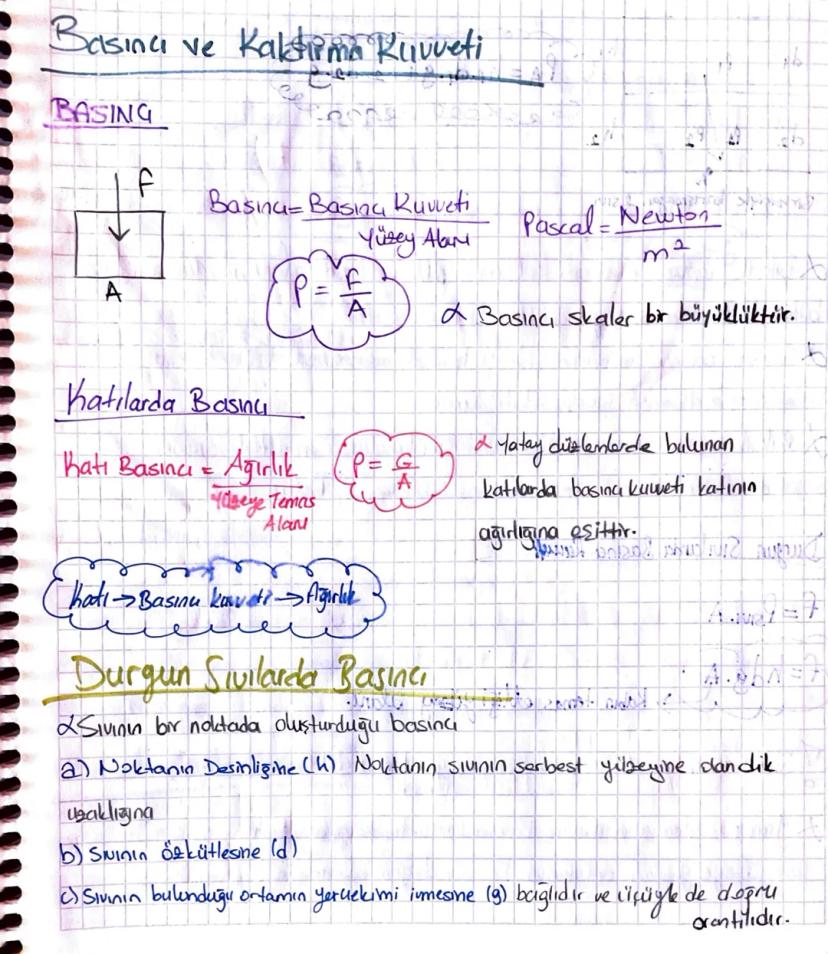 Basıncı ve Kaldırma Kuvveti
BASINÇ
F
A
Basıncı = Basınç Kuvveti / Yüzey Alanı
Pascal = Newton / m²
P = F / A
α Basıncı skaler bir büyüklüktür.
Katılarda Basıncı
Katı Basıncı = Ağırlık / Yüzeye Temas Alanı
P = G / A
α Yatay düzlemlerde bulunan
katılarda basıncı kuvveti katının
ağırlığına eşittir.
Katı → Basıncı kuvveti → Ağırlık
Durgun Sıvılarda Basıncı
α Sıvının bir noktada oluşturduğu basıncı
a) Noktanın Derinliğine (h) Noktanın sıvının serbest yüzeyine olan dik
uzaklığına
b) Sıvının özkütlesine (d)
c) Sıvının bulunduğu ortamın yerçekimi ivmesine (g) bağlıdır ve üçüyle de doğru
orantılıdır.